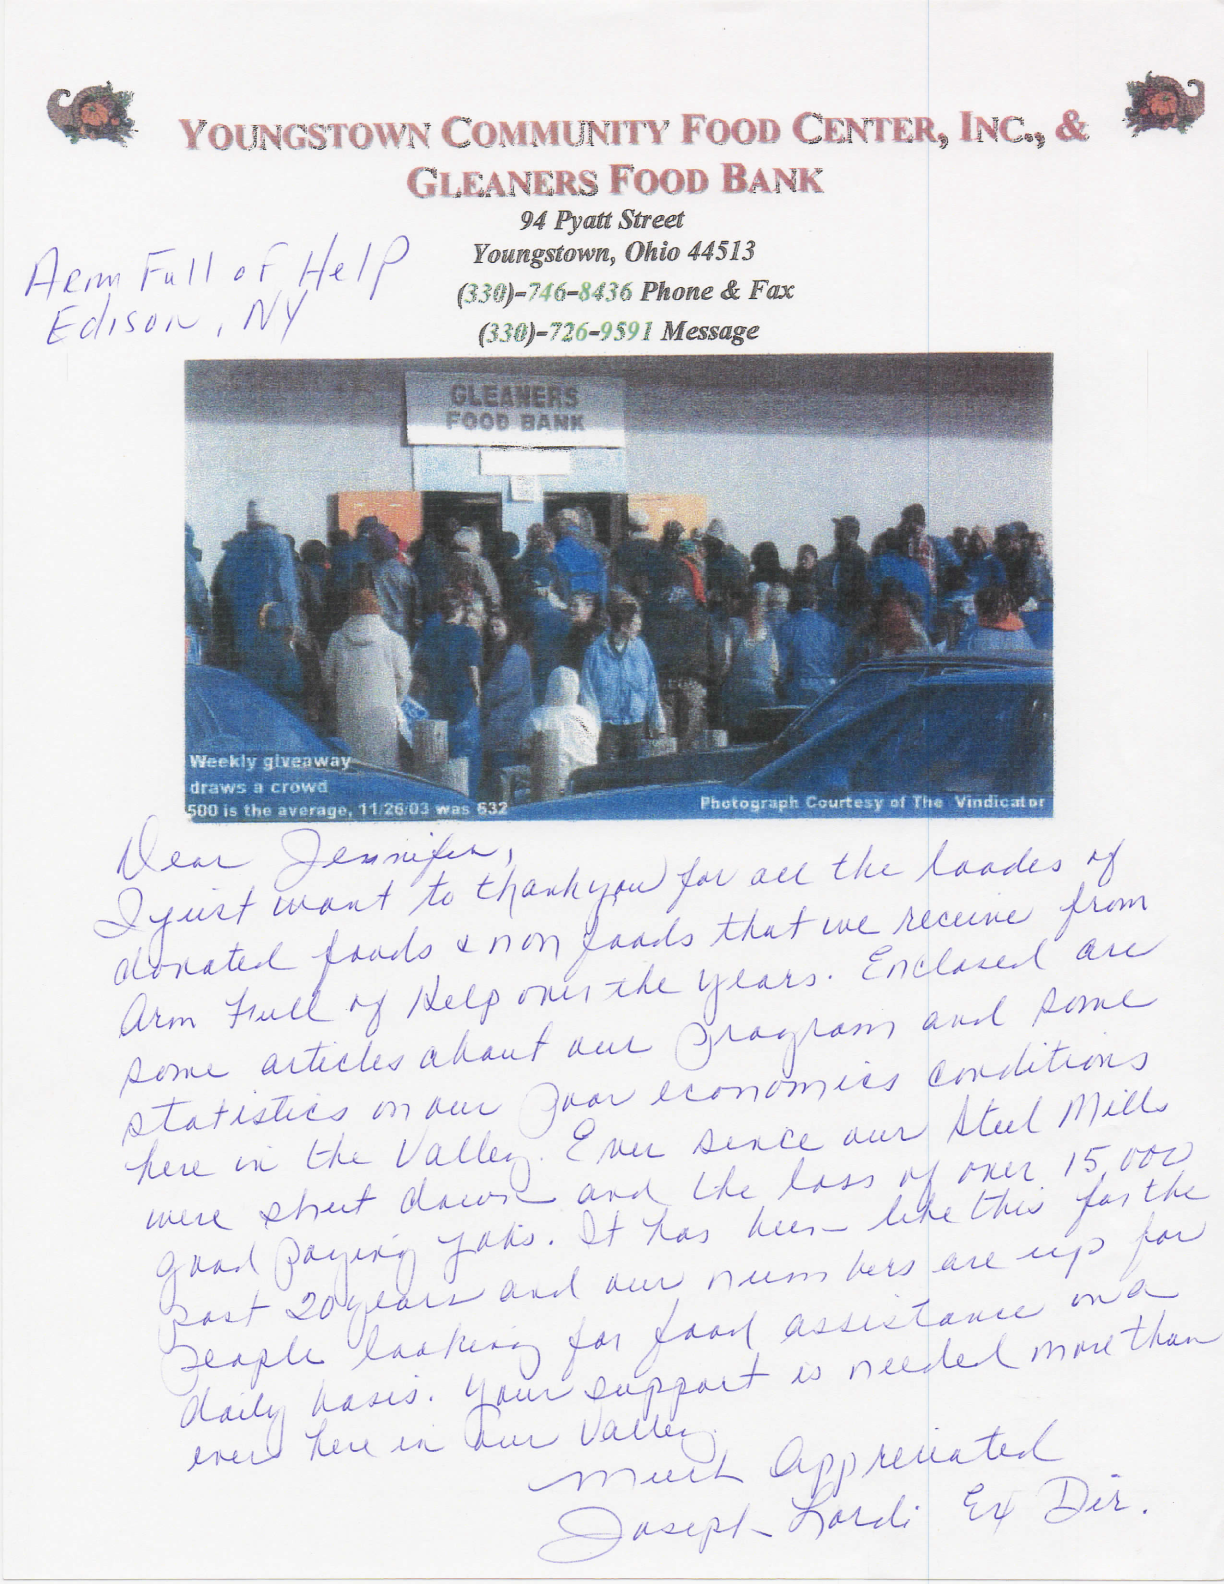 YOUNGSTOWN COMMUNITY FOOD CENTER, INC., &
GLEANERS FOOD BANK
94 Pyatt Street
Youngstown, Ohio 44513
(330)-746-8436 Phone & Fax
(330)-726-9591 Message
Arm Full of Help
Edison, NY
GLEANERS
FOOD BANK
Weekly giveaway
draws a crowd
500 is the average, 11/26/03 was 632
Photograph Courtesy of The Vindicator
Dear Jennifer,
I just want to thank you for all the loades of
donated foods & non foods that we receive from
Arm Full of Help over the years. Enclosed are
some articles about our program and some
statistics on our poor economics conditions
here in the Valley. Ever sence our Steel Mills
were shut down and the loss of over 15,000
good paying jobs. It has been like this for the
past 20 years and our numbers are up for
people looking for food assistance on a
daily basis. Your support is needed more than
ever here in our Valley.
Much Appreciated
Joseph Lordi Ex Dir.